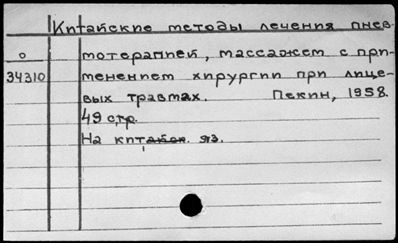 Китайские методы лечения пнев-
о
мотерапией, массажем с при-
34310
менением хирургии при лице-
вых травмах. Пекин, 1958.
49 стр.
На китайск. яз.